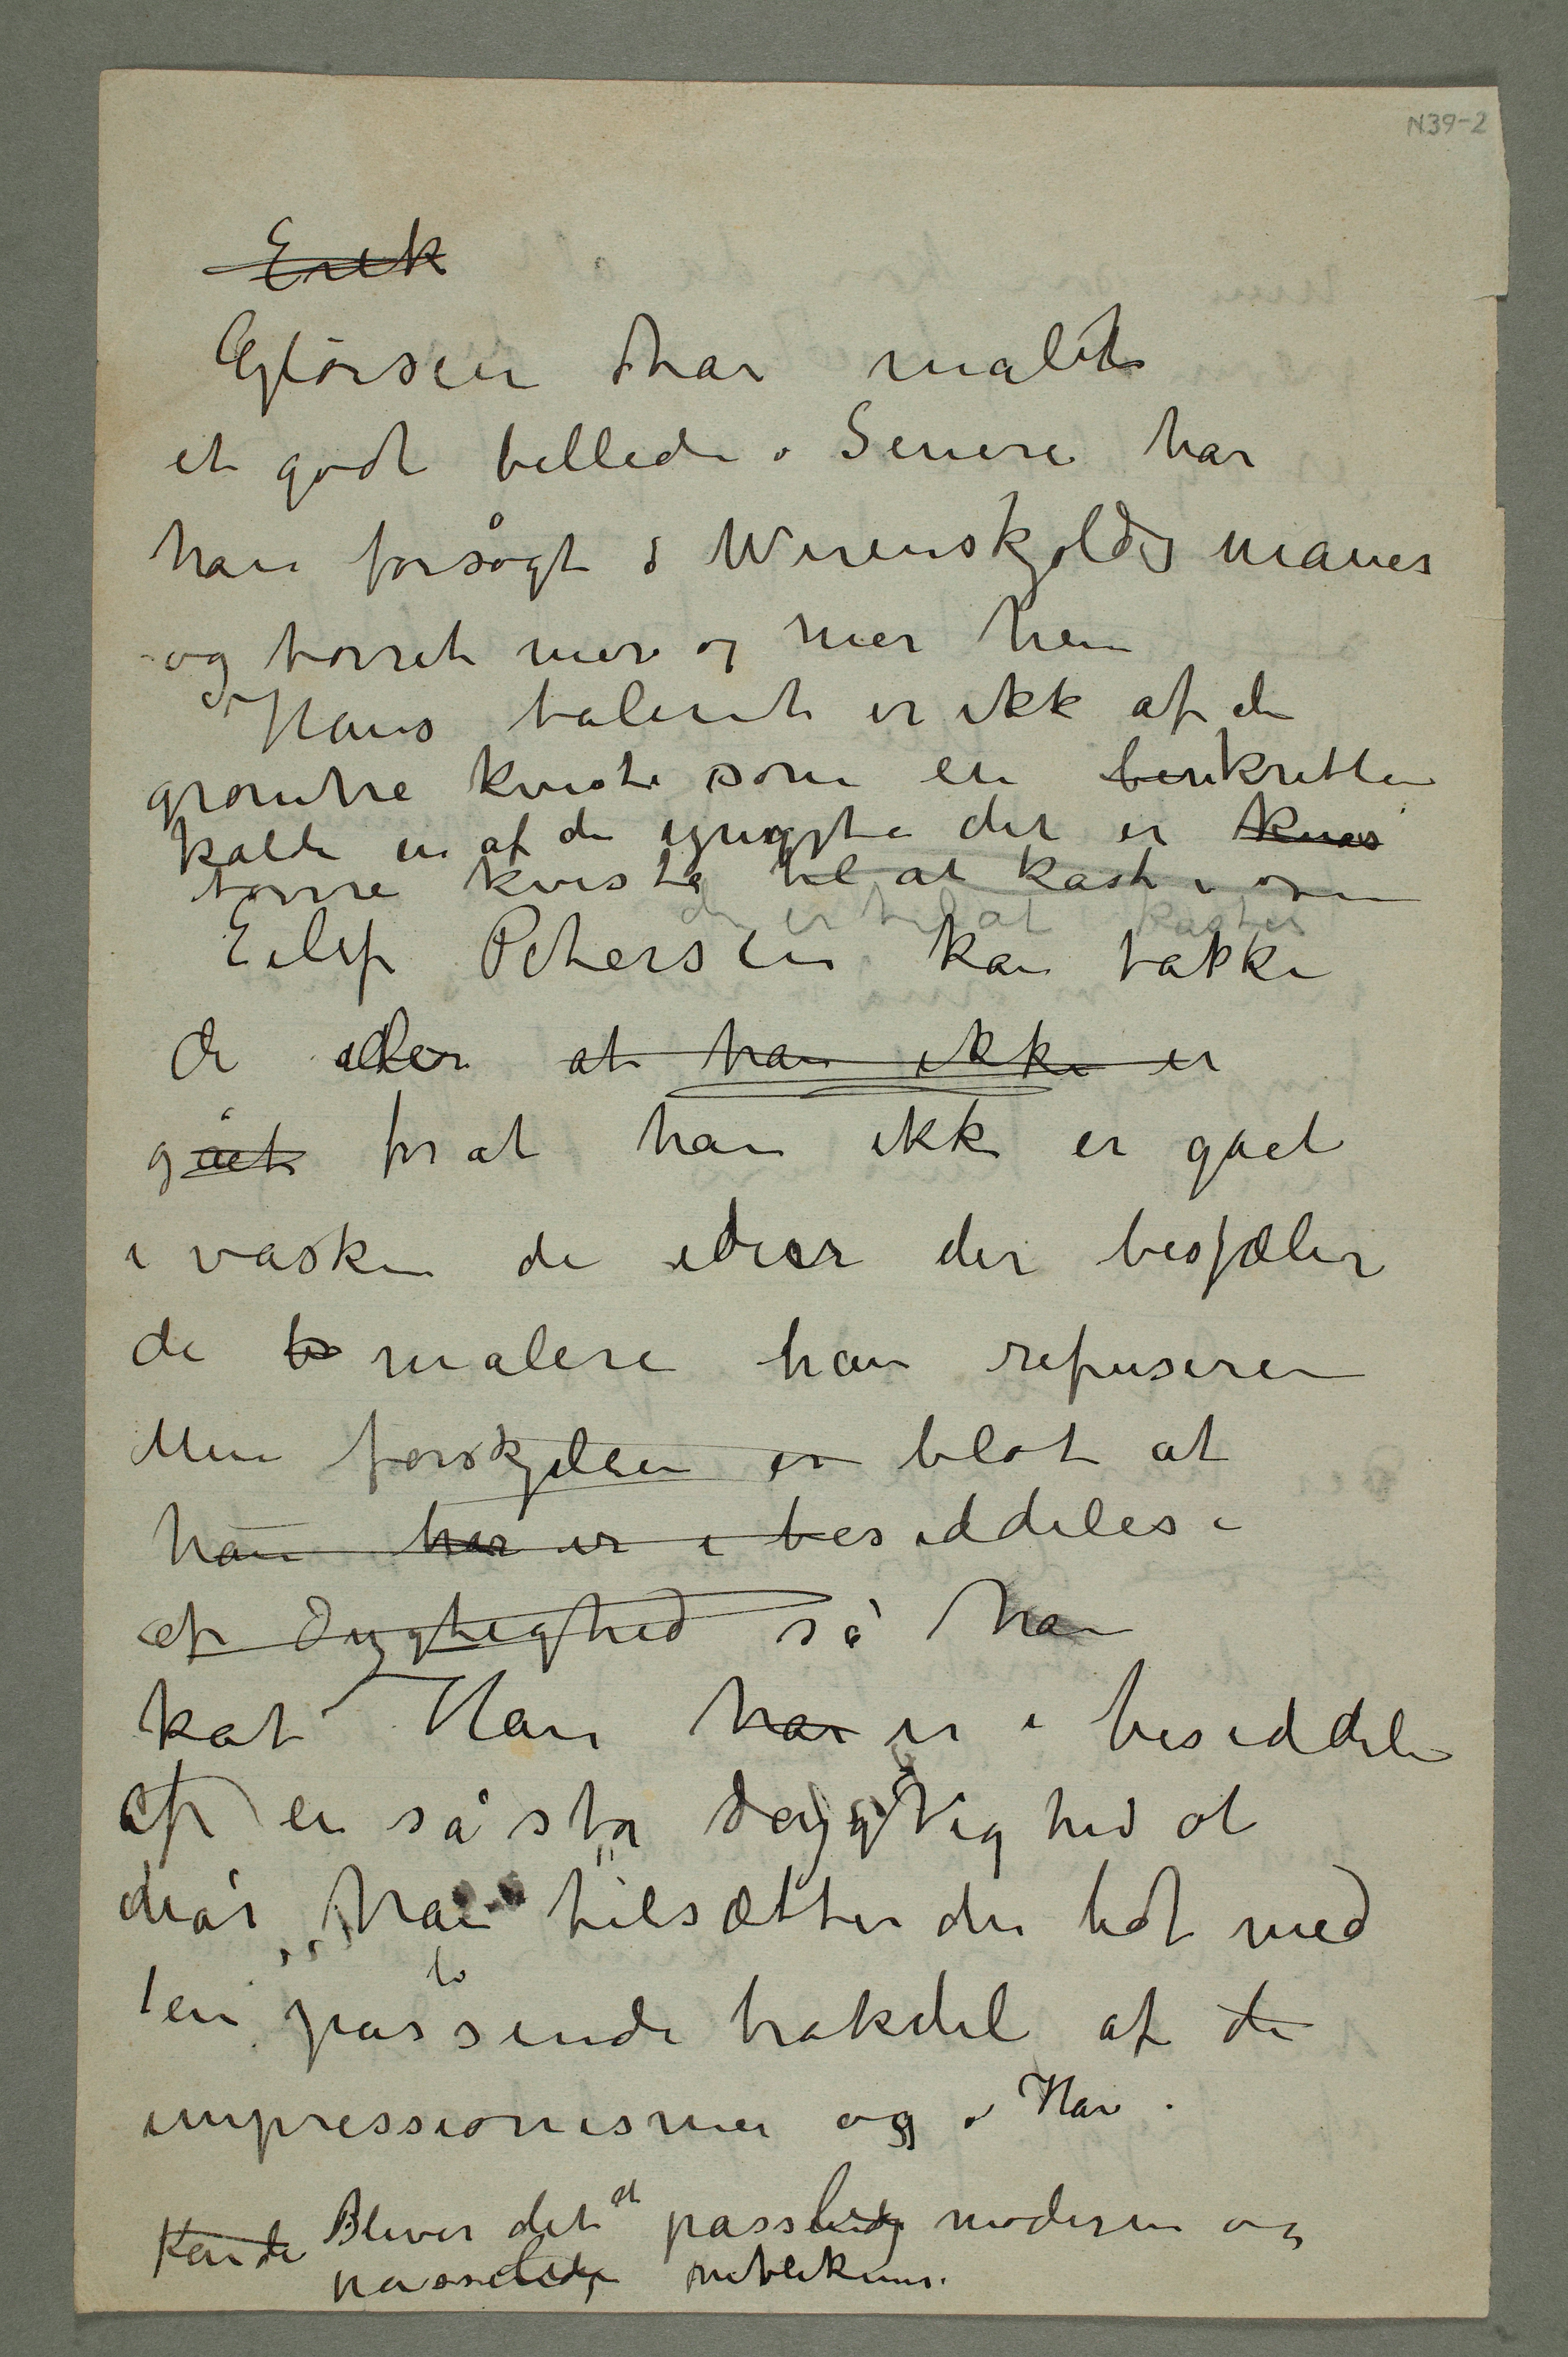 N39-2
Erik
Gløersen har malet
et godt billede. Senere har
han forsøgt i Werenskjolds maner
og tørret mer og mer hen
Hans talent er ikke af de
grønne kviste som en kritiker
kalde en af de yngste der er
tørre kviste til at kaste i ovn
der er til at kastes
Eilif Petersen kan takke
de ideer at han ikke er
gået for at han ikke er gået
i vasken de ideer der besjæler
de malere han refuserer
Men forskjellen er blot at
han har er i besiddelse
af Dygtighed så han
kat Han har er i besiddelse
af en så stor dygtighed at
når han tilsætter den lidt med
en passende brøkdel af de
impressionisme og Han
Kande Bliver det et passelig moderne og
passelig publikum.